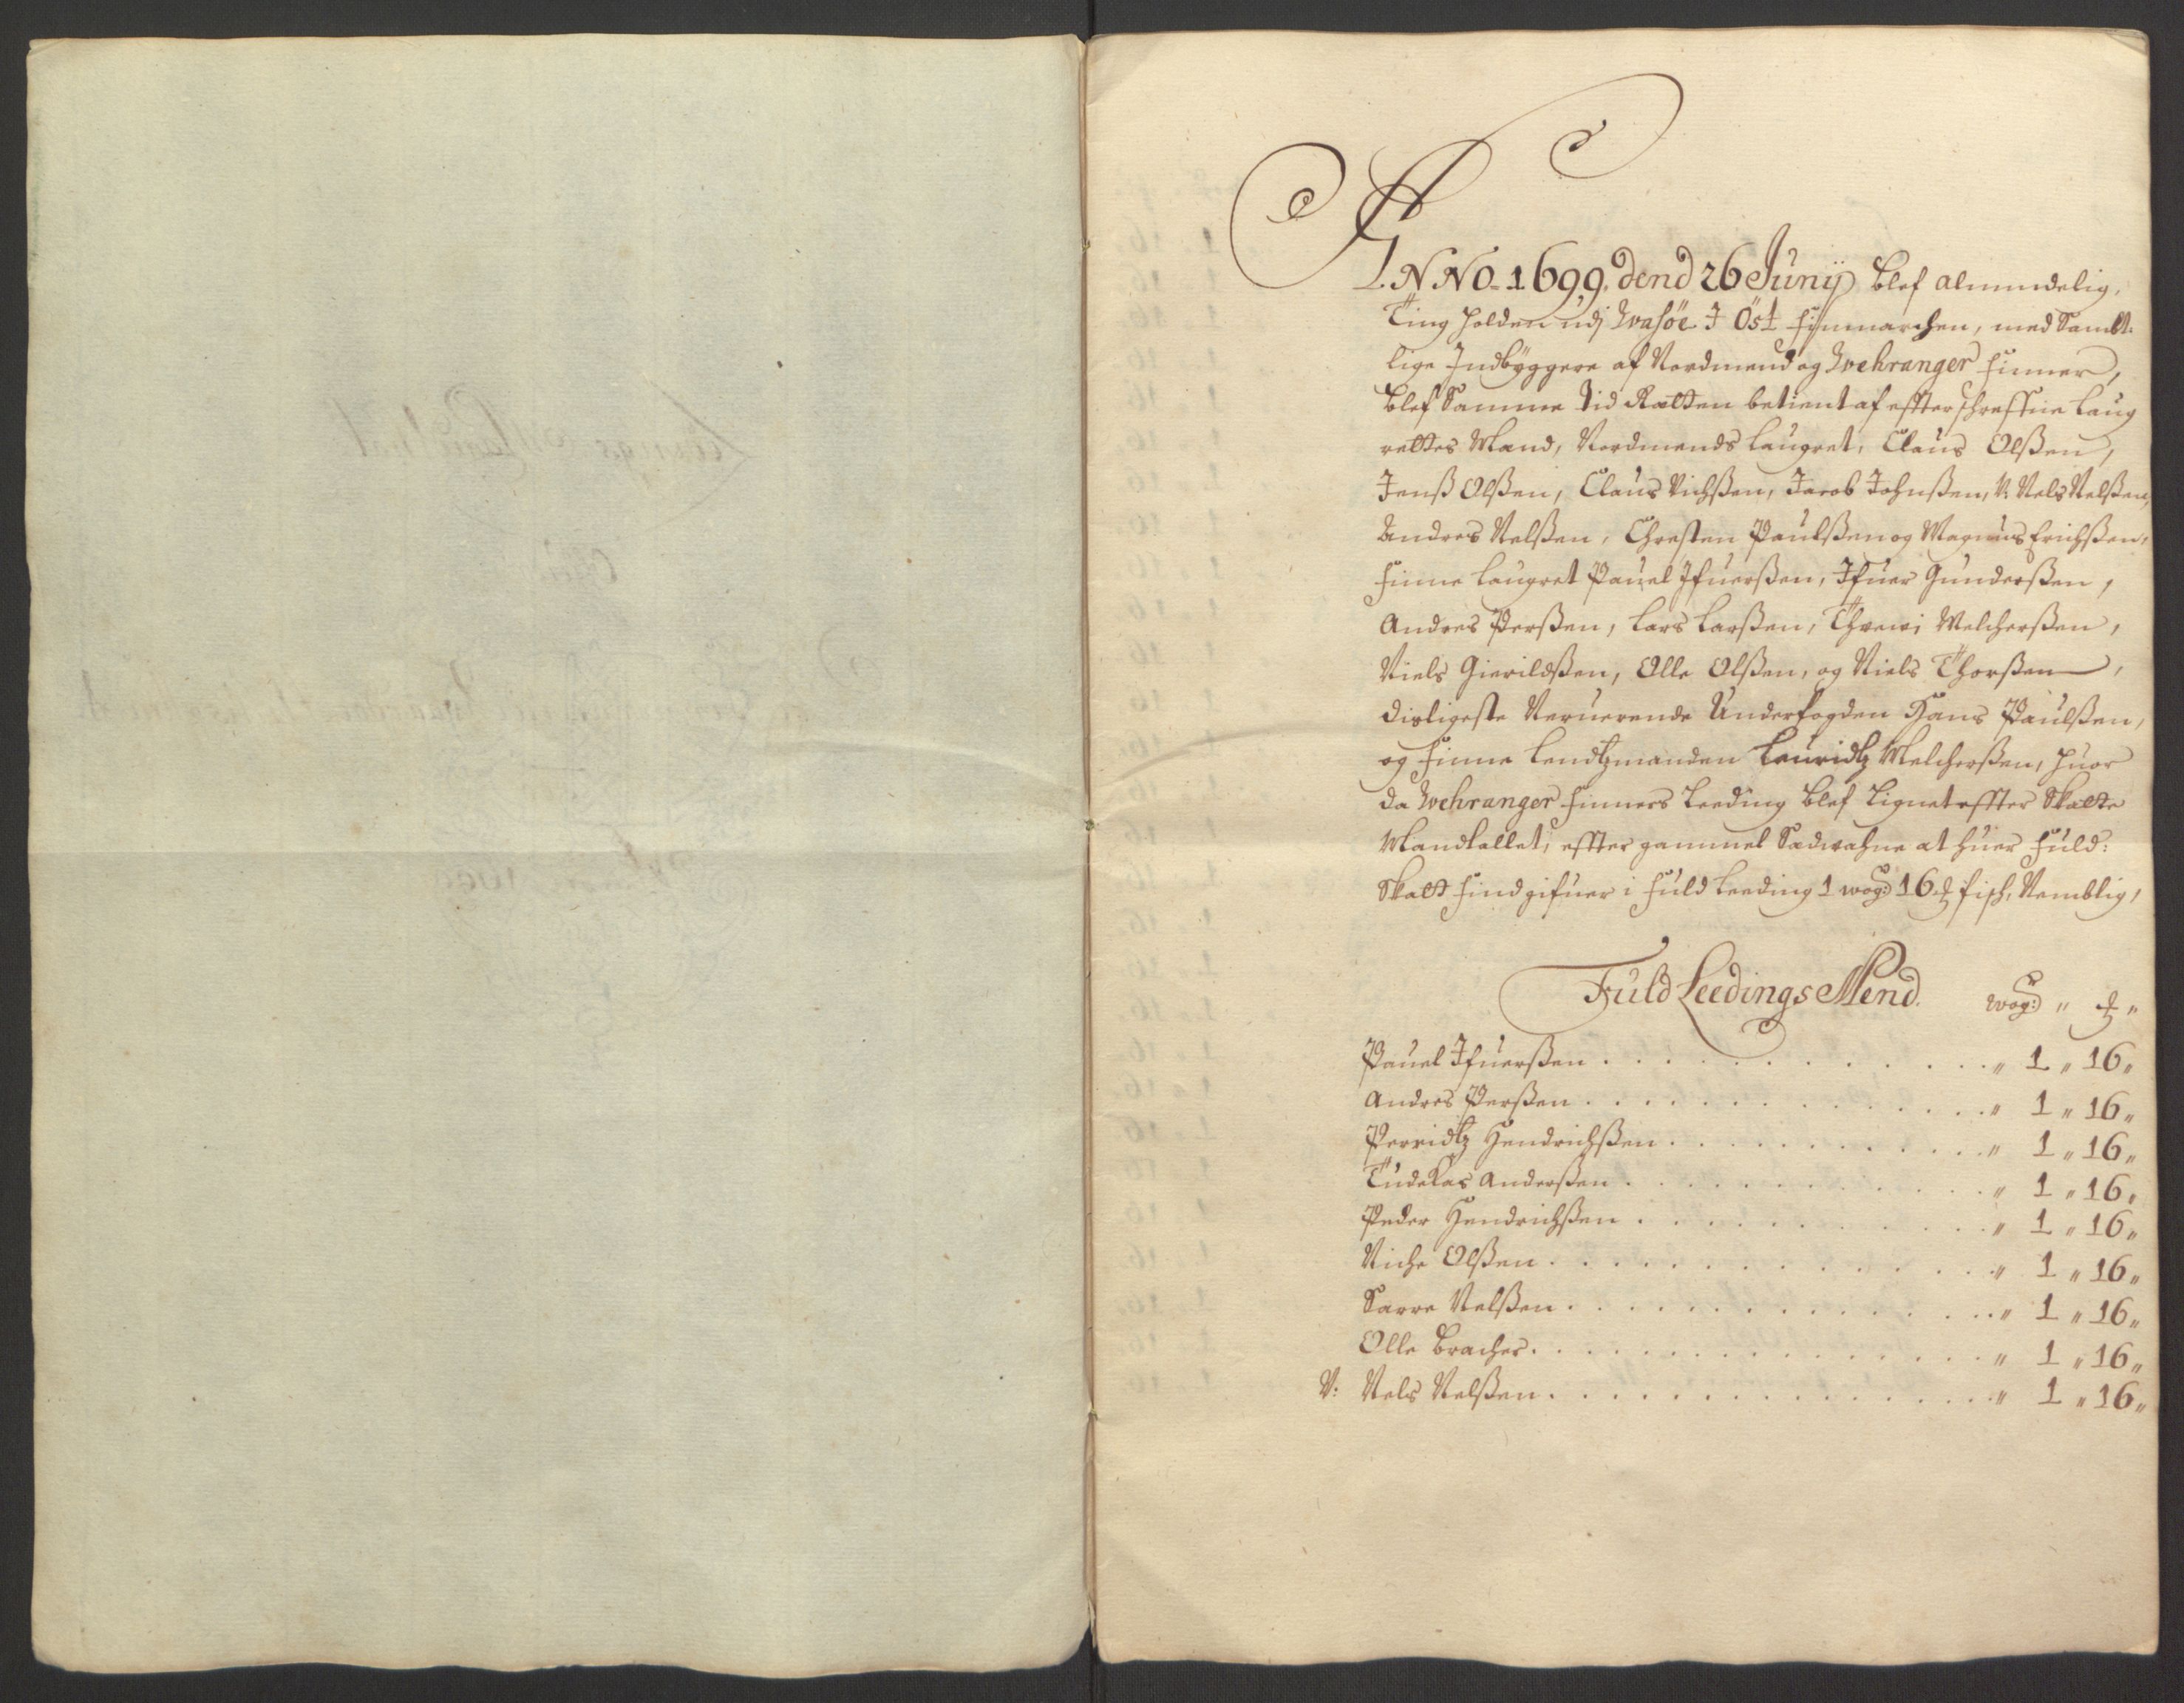 ANNO. 1699. dend 26 Junij blef almindelig,
Ting holden udj Wasöe I Öst finmarchen, med Sambt:
lige Indbÿggere af Nordmend og Wehranger finner,
blef Samme tid Retten betient af effterschreffne Laug
rettes Mænd, Nordmends laugret, Claus Olßen,
Jenß Olßen, Claus Nichßen, Jacob Johnßen, N: Nels Nelßen,
Andres Nelßen, Chresten Paulßen og Magnus Erichßen,
finne laugret Pauel Ifuerßen, Ifuer Gunderßen,
Andres Perßen, Lars Larßen, Melcherßen,
Niels Gierildßen, Olle Olßen, og Niels Thorßen,
disligeste Neruerende Underfogden Hans Paulßen,
og finne lendtzmanden Lauridtz Melcherßen, huor
da Wehranger finners Leeding blef lignet effter Skatte
Mandtallet, effter gammel Sædwahne at huer fuld:
Skatt find gifuer i fuld Leeding 1 wog: 16 ℔ fisch, Nemblig,
Fuld Leedings Mend. wog: " ℔ "
Pauel Ifuerßen . . . " 1 " 16 "
Andres Perßen . . . " 1 " 16 "
Perridtz Hendrichßen . . . " 1 " 16 "
Tudekas Anderßen . . . " 1 " 16 "
Peder Hendrichßen . . . " 1 " 16 "
Niche Olßen . . . " 1 " 16 "
Sarre Nelßen . . . " 1 " 16 "
Olle Bracher . . . " 1 " 16 "
N: Nels Nelßen . . . " 1 " 16 "